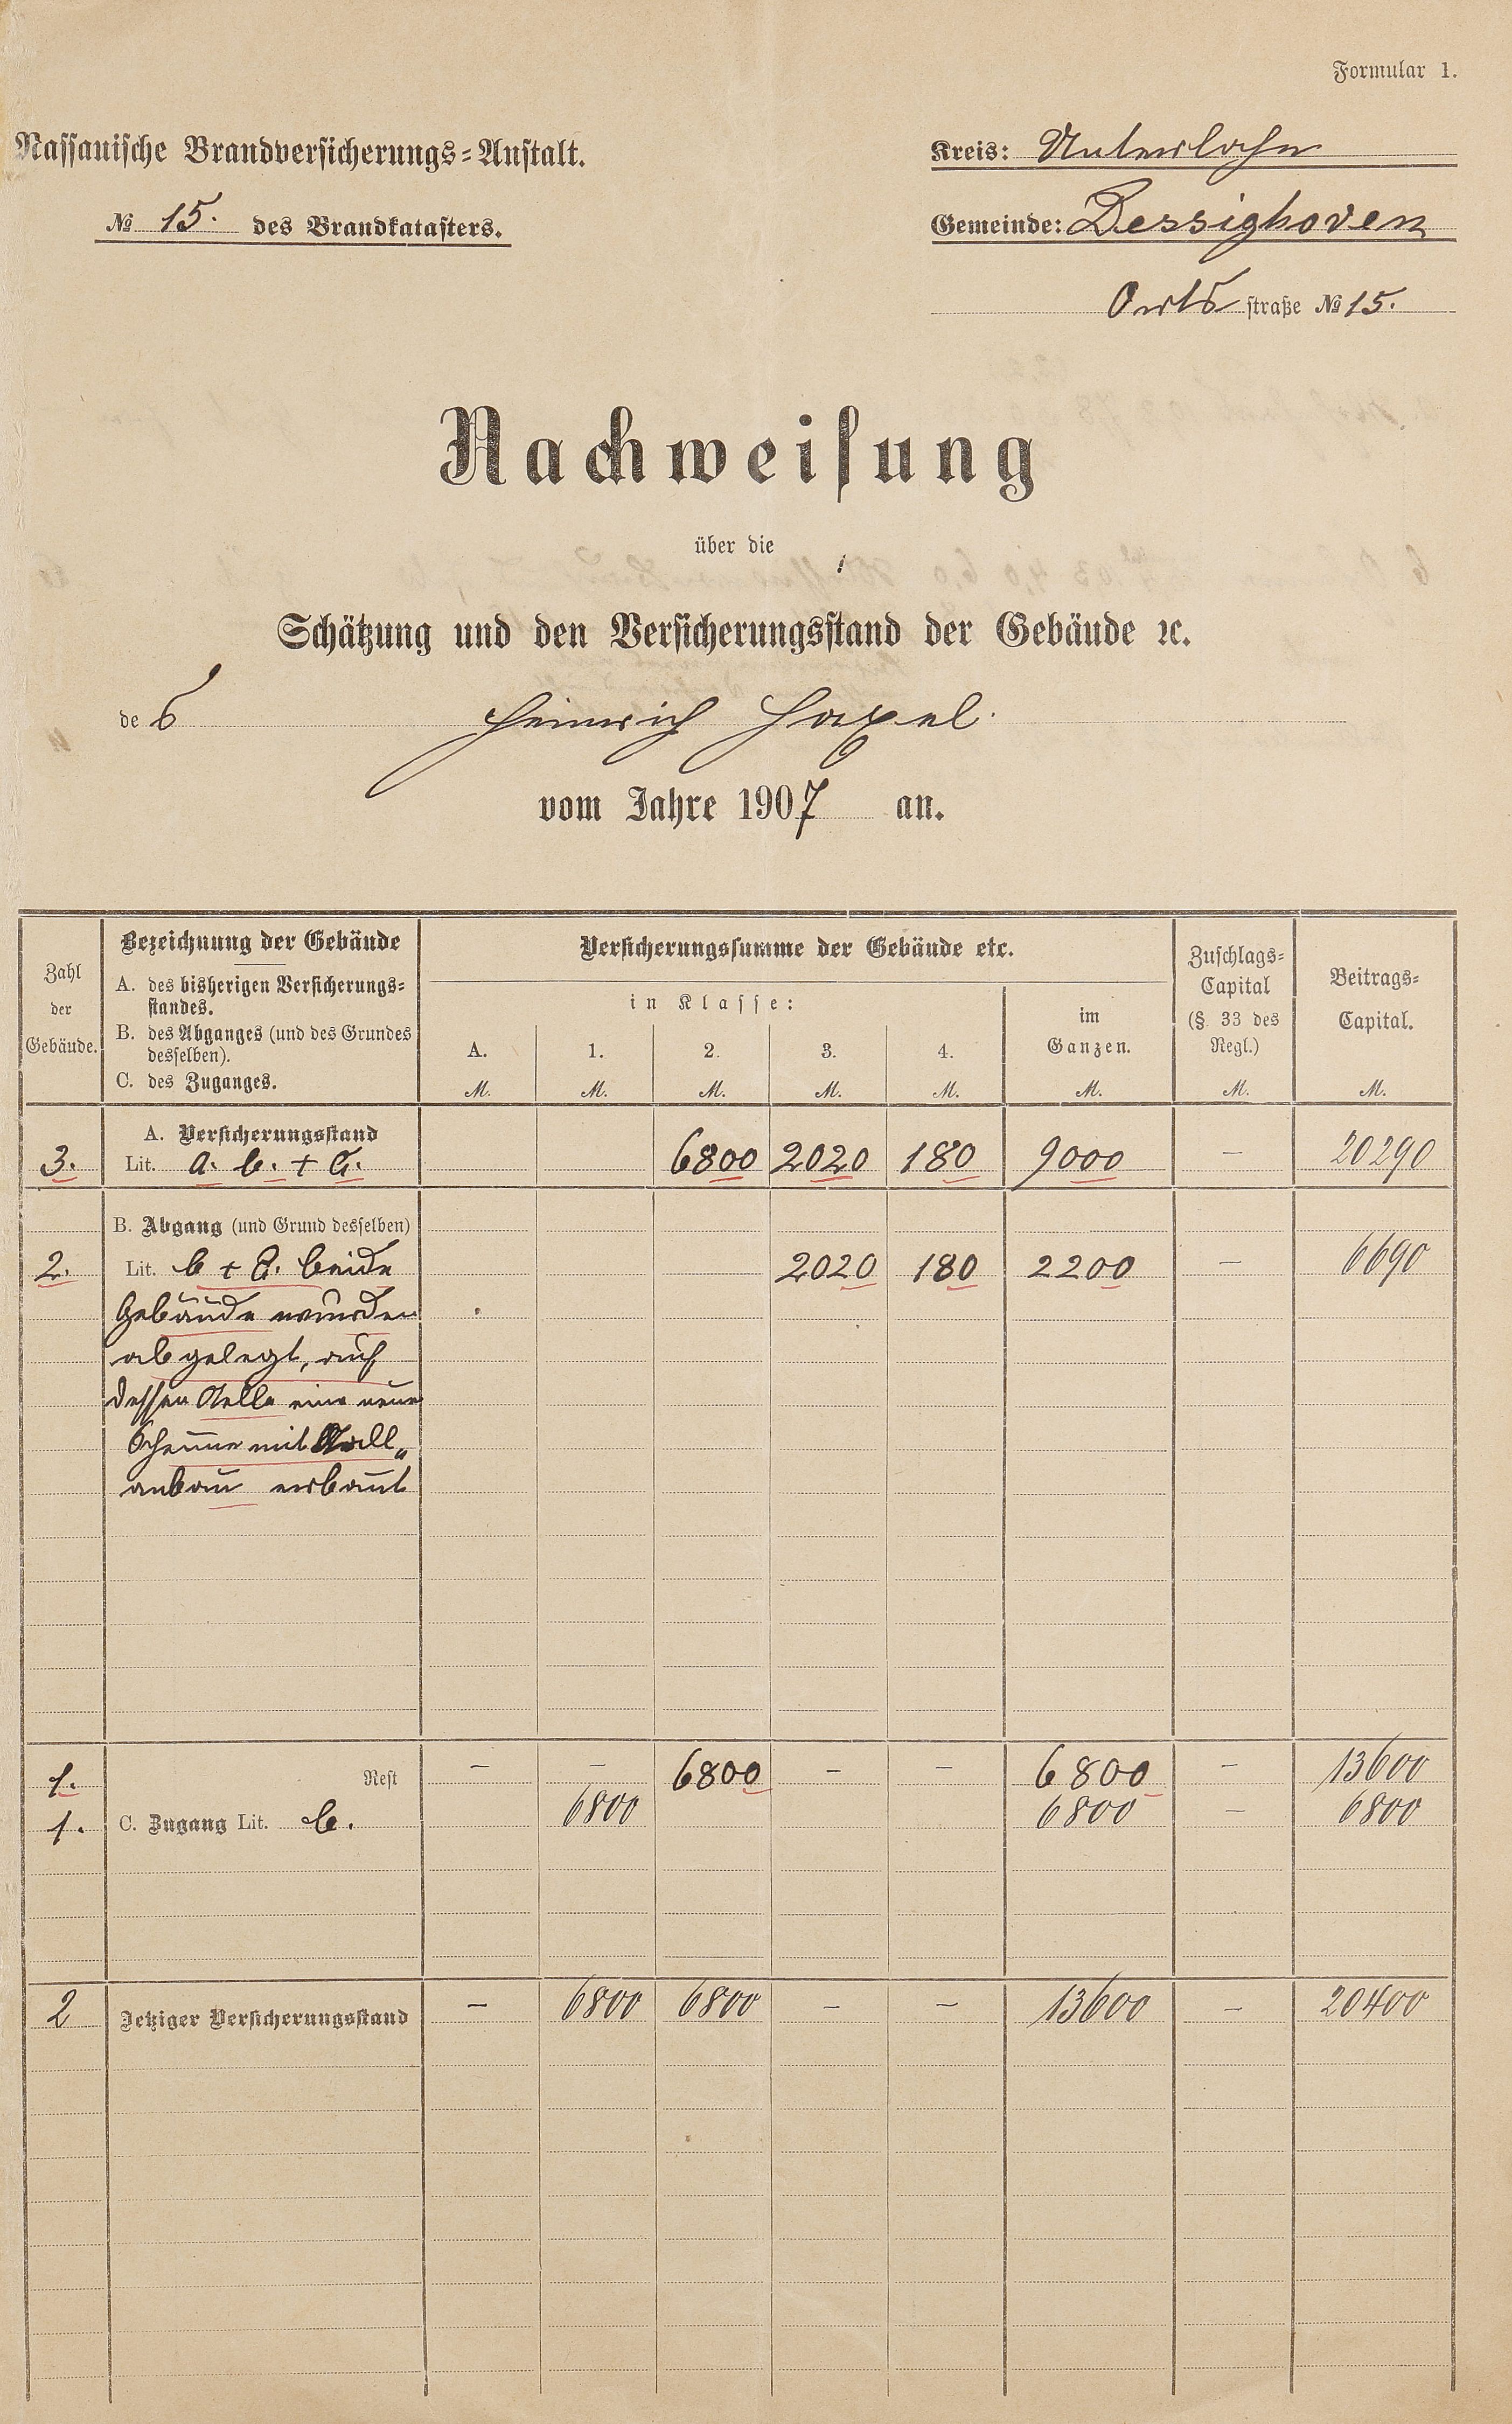 Formular 1.
Nassauische Brandversicherungs=Anstalt.
№ 15. des Brandkatasters.
Kreis: Unterlahn
Gemeinde: Dessighoven
Orts straße № 15.
Nachweisung
über die
Schätzung und den Versicherungsstand der Gebäude ꝛc.
des Heinrich
vom Jahre 1907 an.
Zahl der Gebäude.
Bezeichnung der Gebäude
A. des bisherigen Versicherungs=
standes.
B. des Abganges (und des Grundes
desselben).
C. des Zuganges.
Versicherungssumme der Gebäude etc.
in Klasse:
A. 1. 2. 3. 4.
im
Ganzen.
Zuschlags=
Capital
(§. 33 des
Regl.)
Beitrags=
Capital.
M. M. M. M. M. M. M. M.
A. Versicherungsstand
3. Lit. a. b. + c. 6800 2020 180 9000 — 20290
B. Abgang (und Grund desselben)
2. Lit. b + c. beide 2020 180 2200 — 6690
Gebäude wurden
abgelegt, auf
dessen Stelle eine neue
Scheune mit Stall„
anbau erbaut
1. Rest — — 6800 — — 6800 — 13600
1. C. Zugang Lit. b. 6800 6800 — 6800
2 Jetziger Versicherungsstand — 6800 6800 — — 13600 — 20400